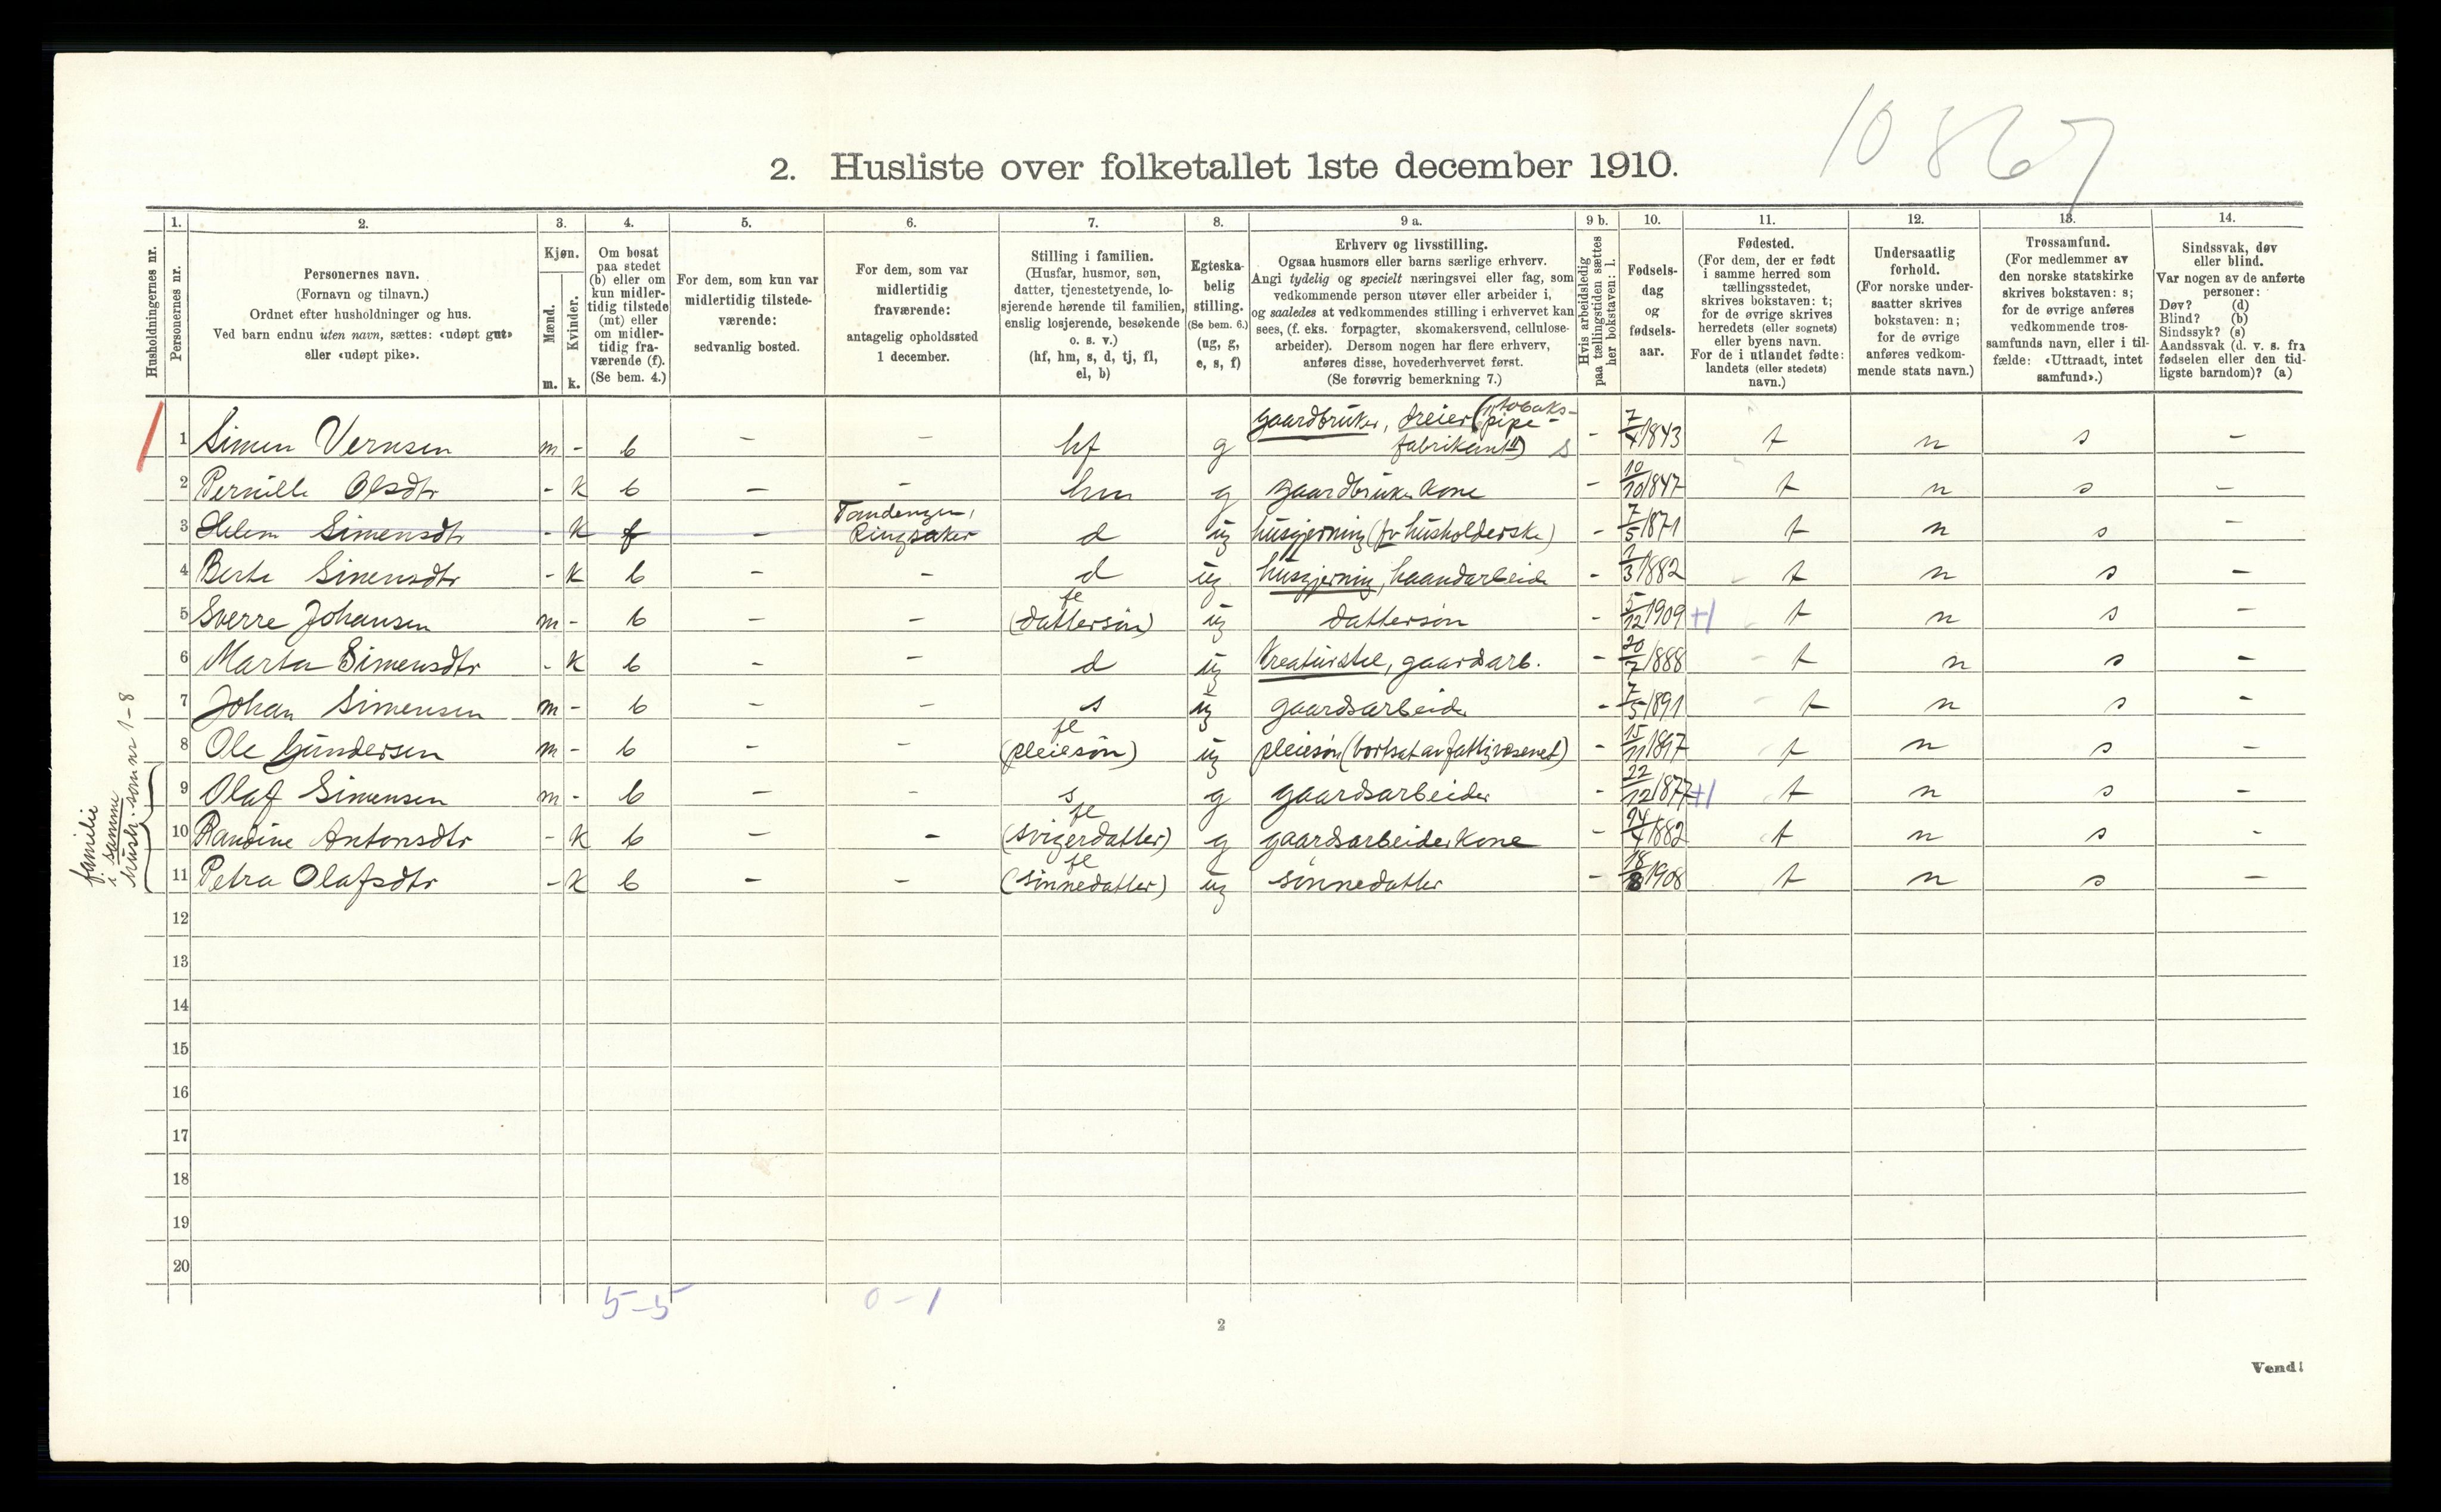 10 867
2. Husliste over folketallet 1ste december 1910.
Husholdningernes nr.
1. Personernes nr.
2. Personernes navn.
(Fornavn og tilnavn.)
Ordnet efter husholdninger og hus.
Ved barn endnu uten navn, sættes: «udøpt gut»
eller «udøpt pike».
3. Kjøn.
Mænd. m.
Kvinder. k.
4. Om bosat
paa stedet
(b) eller om
kun midler-
tidig tilstede
(mt) eller
om midler-
tidig fra-
værende (f).
(Se bem. 4.)
5. For dem, som kun var
midlertidig tilstede-
værende:
sedvanlig bosted.
6. For dem, som var
midlertidig
fraværende:
antagelig opholdssted
1 december.
7. Stilling i familien.
(Husfar, husmor, søn,
datter, tjenestetyende, lo-
sjerende hørende til familien,
enslig losjerende, besøkende
o. s. v.)
(hf, hm, s, d, tj, fl,
el, b)
8. Egteska-
belig
stilling.
(Se bem. 6.)
(ug, g,
e, s, f)
9 a. Erhverv og livsstilling.
Ogsaa husmors eller barns særlige erhverv.
Angi tydelig og specielt næringsvei eller fag, som
vedkommende person utøver eller arbeider i,
og saaledes at vedkommendes stilling i erhvervet kan
sees, (f. eks. forpagter, skomakersvend, cellulose-
arbeider). Dersom nogen har flere erhverv,
anføres disse, hovederhvervet først.
(Se forøvrig bemerkning 7.)
9 b. Hvis arbeidsledig
paa tællingstiden sættes
her bokstaven: l.
10. Fødsels-
dag
og
fødsels-
aar.
11. Fødested.
(For dem, der er født
i samme herred som
tællingsstedet,
skrives bokstaven: t;
for de øvrige skrives
herredets (eller sognets)
eller byens navn.
For de i utlandet fødte:
landets (eller stedets)
navn.)
12. Undersaatlig
forhold.
(For norske under-
saatter skrives
bokstaven: n;
for de øvrige
anføres vedkom-
mende stats navn.)
13. Trossamfund.
(For medlemmer av
den norske statskirke
skrives bokstaven: s;
for de øvrige anføres
vedkommende tros-
samfunds navn, eller i til-
fælde: «Uttraadt, intet
samfund».)
14. Sindssvak, døv
eller blind.
Var nogen av de anførte
personer:
Døv? (d)
Blind? (b)
Sindssyk? (s)
Aandssvak (d. v. s. fra
fødselen eller den tid-
ligste barndom)? (a)
1 Simen Vernsen m - b - - hf g gaardbruker, dreier ("tobaks-pipe-fabrikant") s - 7/4 1843 t n s -
2 Pernille Olsdtr - k b - - hm g gaardbruker kone - 10/10 1847 t n s -
3 Helene Simensdtr - k f - Ringsaker d ug husgjerning (fv husholderske) - 7/5 1871 t n s -
4 Berte Simensdtr - k b - - d ug husgjerning, haandarbeide - 1/3 1882 t n s -
5 Sverre Johansen m - b - - fl (dattersøn) ug dattersøn - 5/12 1909 +1 t n s -
6 Marta Simensdtr - k b - - d ug Kreaturstel, gaardarb. - 20/7 1888 t n s -
7 Johan Simensen m - b - - s ug gaardsarbeider - 7/5 1891 t n s -
8 Ole Gundersen m - b - - fl (pleiesøn) ug pleiesøn (bortsat av fattigvæsenet) - 15/11 1897 t n s -
9 Olaf Simensen m - b - - s g gaardsarbeider - 22/12 1877 +1 t n s -
10 Randine Antonsdtr - k b - - fl (svigerdatter) g gaardsarbeider kone - 24/4 1882 t n s -
11 Petra Olafsdtr - k b - - fl (sønnedatter) ug sønnedatter - 18/8 1908 t n s -
familie
i samme
hush. som nr 1-8
12
13
14
15
16
17
18
19
20
5-5 0-1
2
Vend!